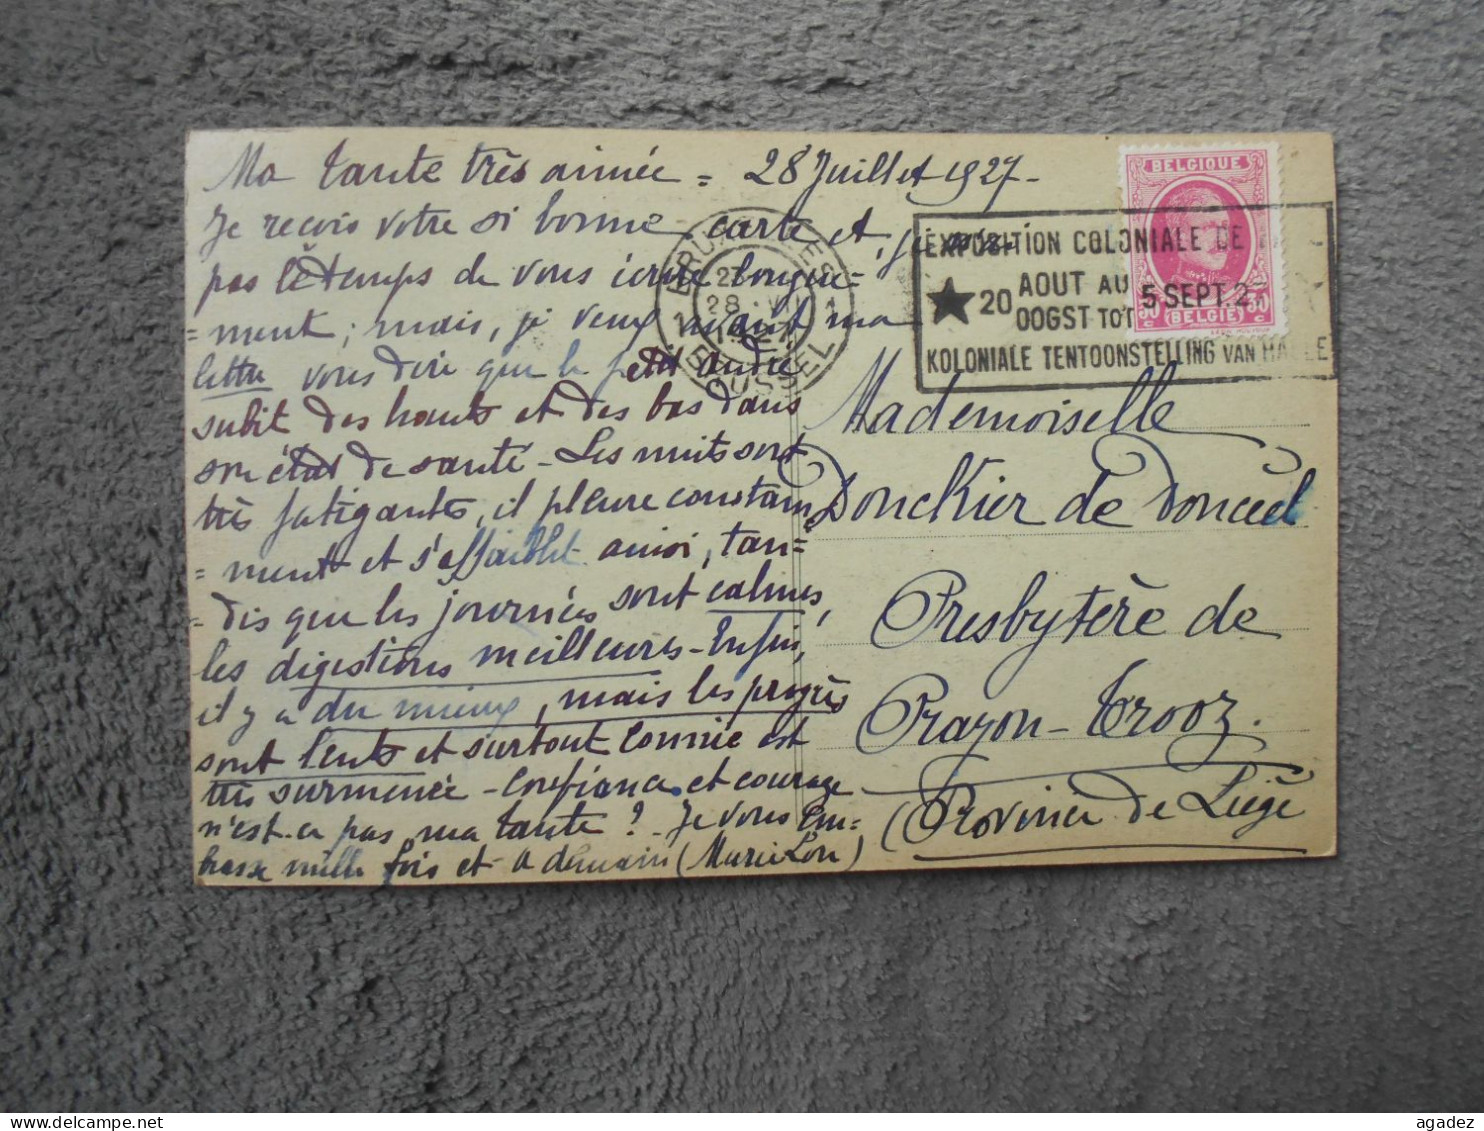 Ma tante très aimée = 28 Juillet 1927-
Je reçois votre si bonne carte et, je n'ai
pas le temps de vous écrire longue=
=ment; mais, je veux avant ma
lettre vous dire que le petit André
subit des hauts et des bas dans
son état de santé - Les nuits sont
très fatigantes, il pleure constam
=ment et s'affaiblit ainsi, tan=
=dis que les journées sont calmes,
les digestions meilleures - Enfin,
il y a du mieux, mais les progrès
sont lents et surtout Connie est
très surmenée - Confiance et courage
n'est-ce pas, ma tante ? - Je vous em=
brasse mille fois et à demain (Marie Lou)
BRUXELLES
28 VII
1927
BRUSSEL
BELGIQUE
EXPOSITION COLONIALE DE
20 AOUT AU 5 SEPT. 2
OOGST TOT
KOLONIALE TENTOONSTELLING VAN HA LE
BELGIË
Mademoiselle
Donckier de Donceel
Presbytère de
Prayon-Trooz.
(Province de Liège
agadez